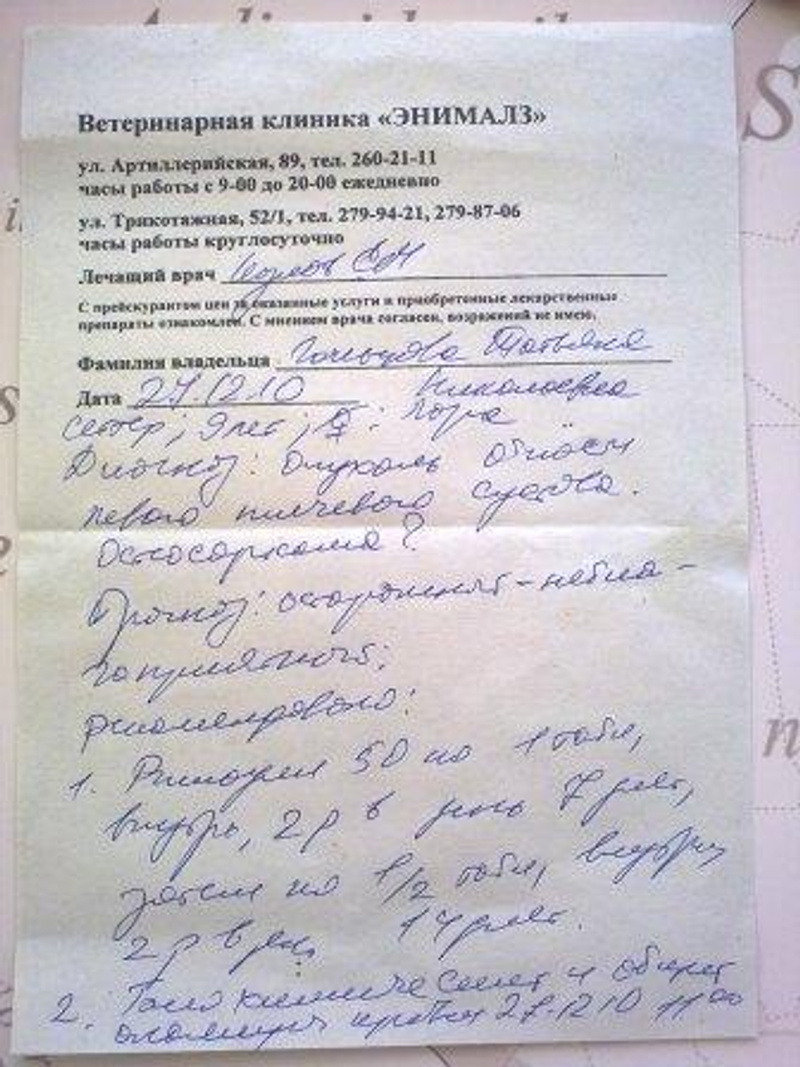 Ветеринарная клиника «ЭНИМАЛЗ»
ул. Артиллерийская, 89, тел. 260-21-11
часы работы с 9-00 до 20-00 ежедневно
ул. Трикотажная, 52/1, тел. 279-94-21, 279-87-06
часы работы круглосуточно
Лечащий врач
С прейскурантом цен за оказанные услуги и приобретенные лекарственные
препараты ознакомлен. С мнением врача согласен, возражений не имею.
Фамилия владельца Татьяна
Дата 27.12.10 Николаевна
сеттер; 9 лет; Лора
Диагноз: Опухоль области
левого плечевого сустава.
Остеосаркома?
Прогноз: осторожный - небла-
гоприятный;
рекомендовано:
1. Римадил 50 по 1 табл,
внутрь, 2 р в день 7 дней,
затем по 1/2 табл, внутрь
2 р в день 14 дней.
2. Гемоклинический и
крови 27.12.10 11 00